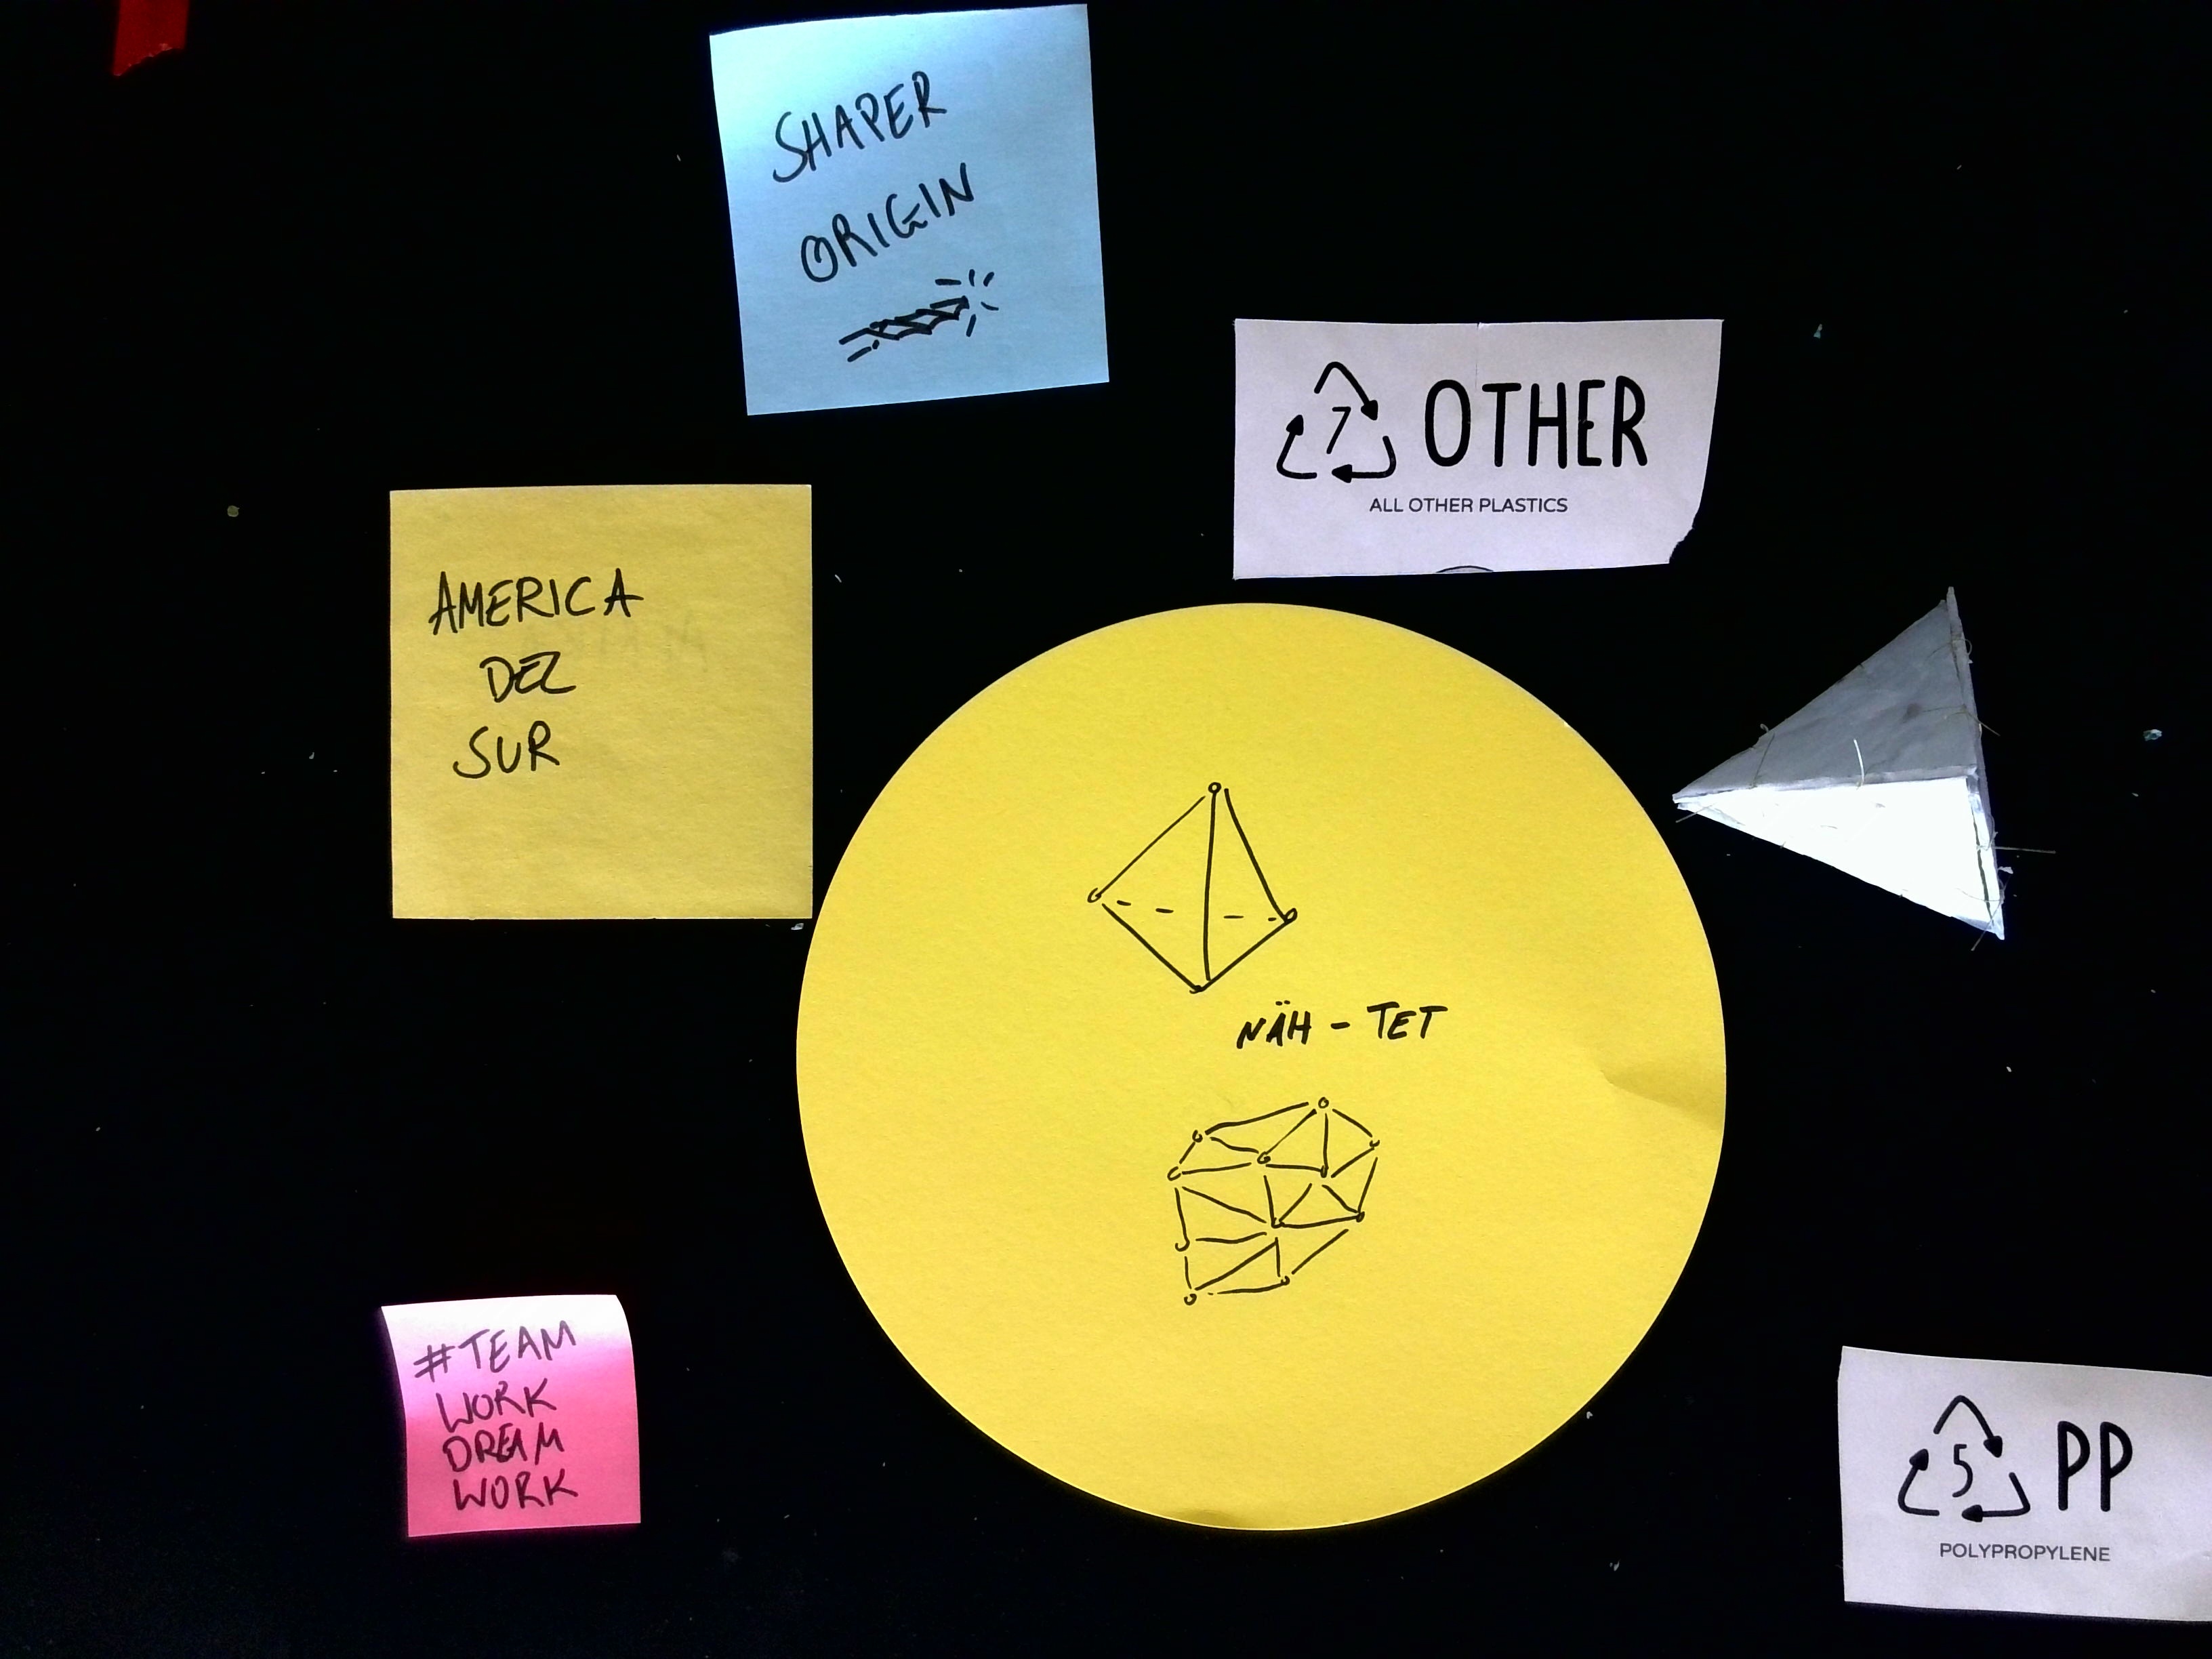 SHAPER
ORIGIN
7 OTHER
ALL OTHER PLASTICS
AMERICA
DEL
SUR
NÄH - TET
#TEAM
WORK
DREAM
WORK
5 PP
POLYPROPYLENE